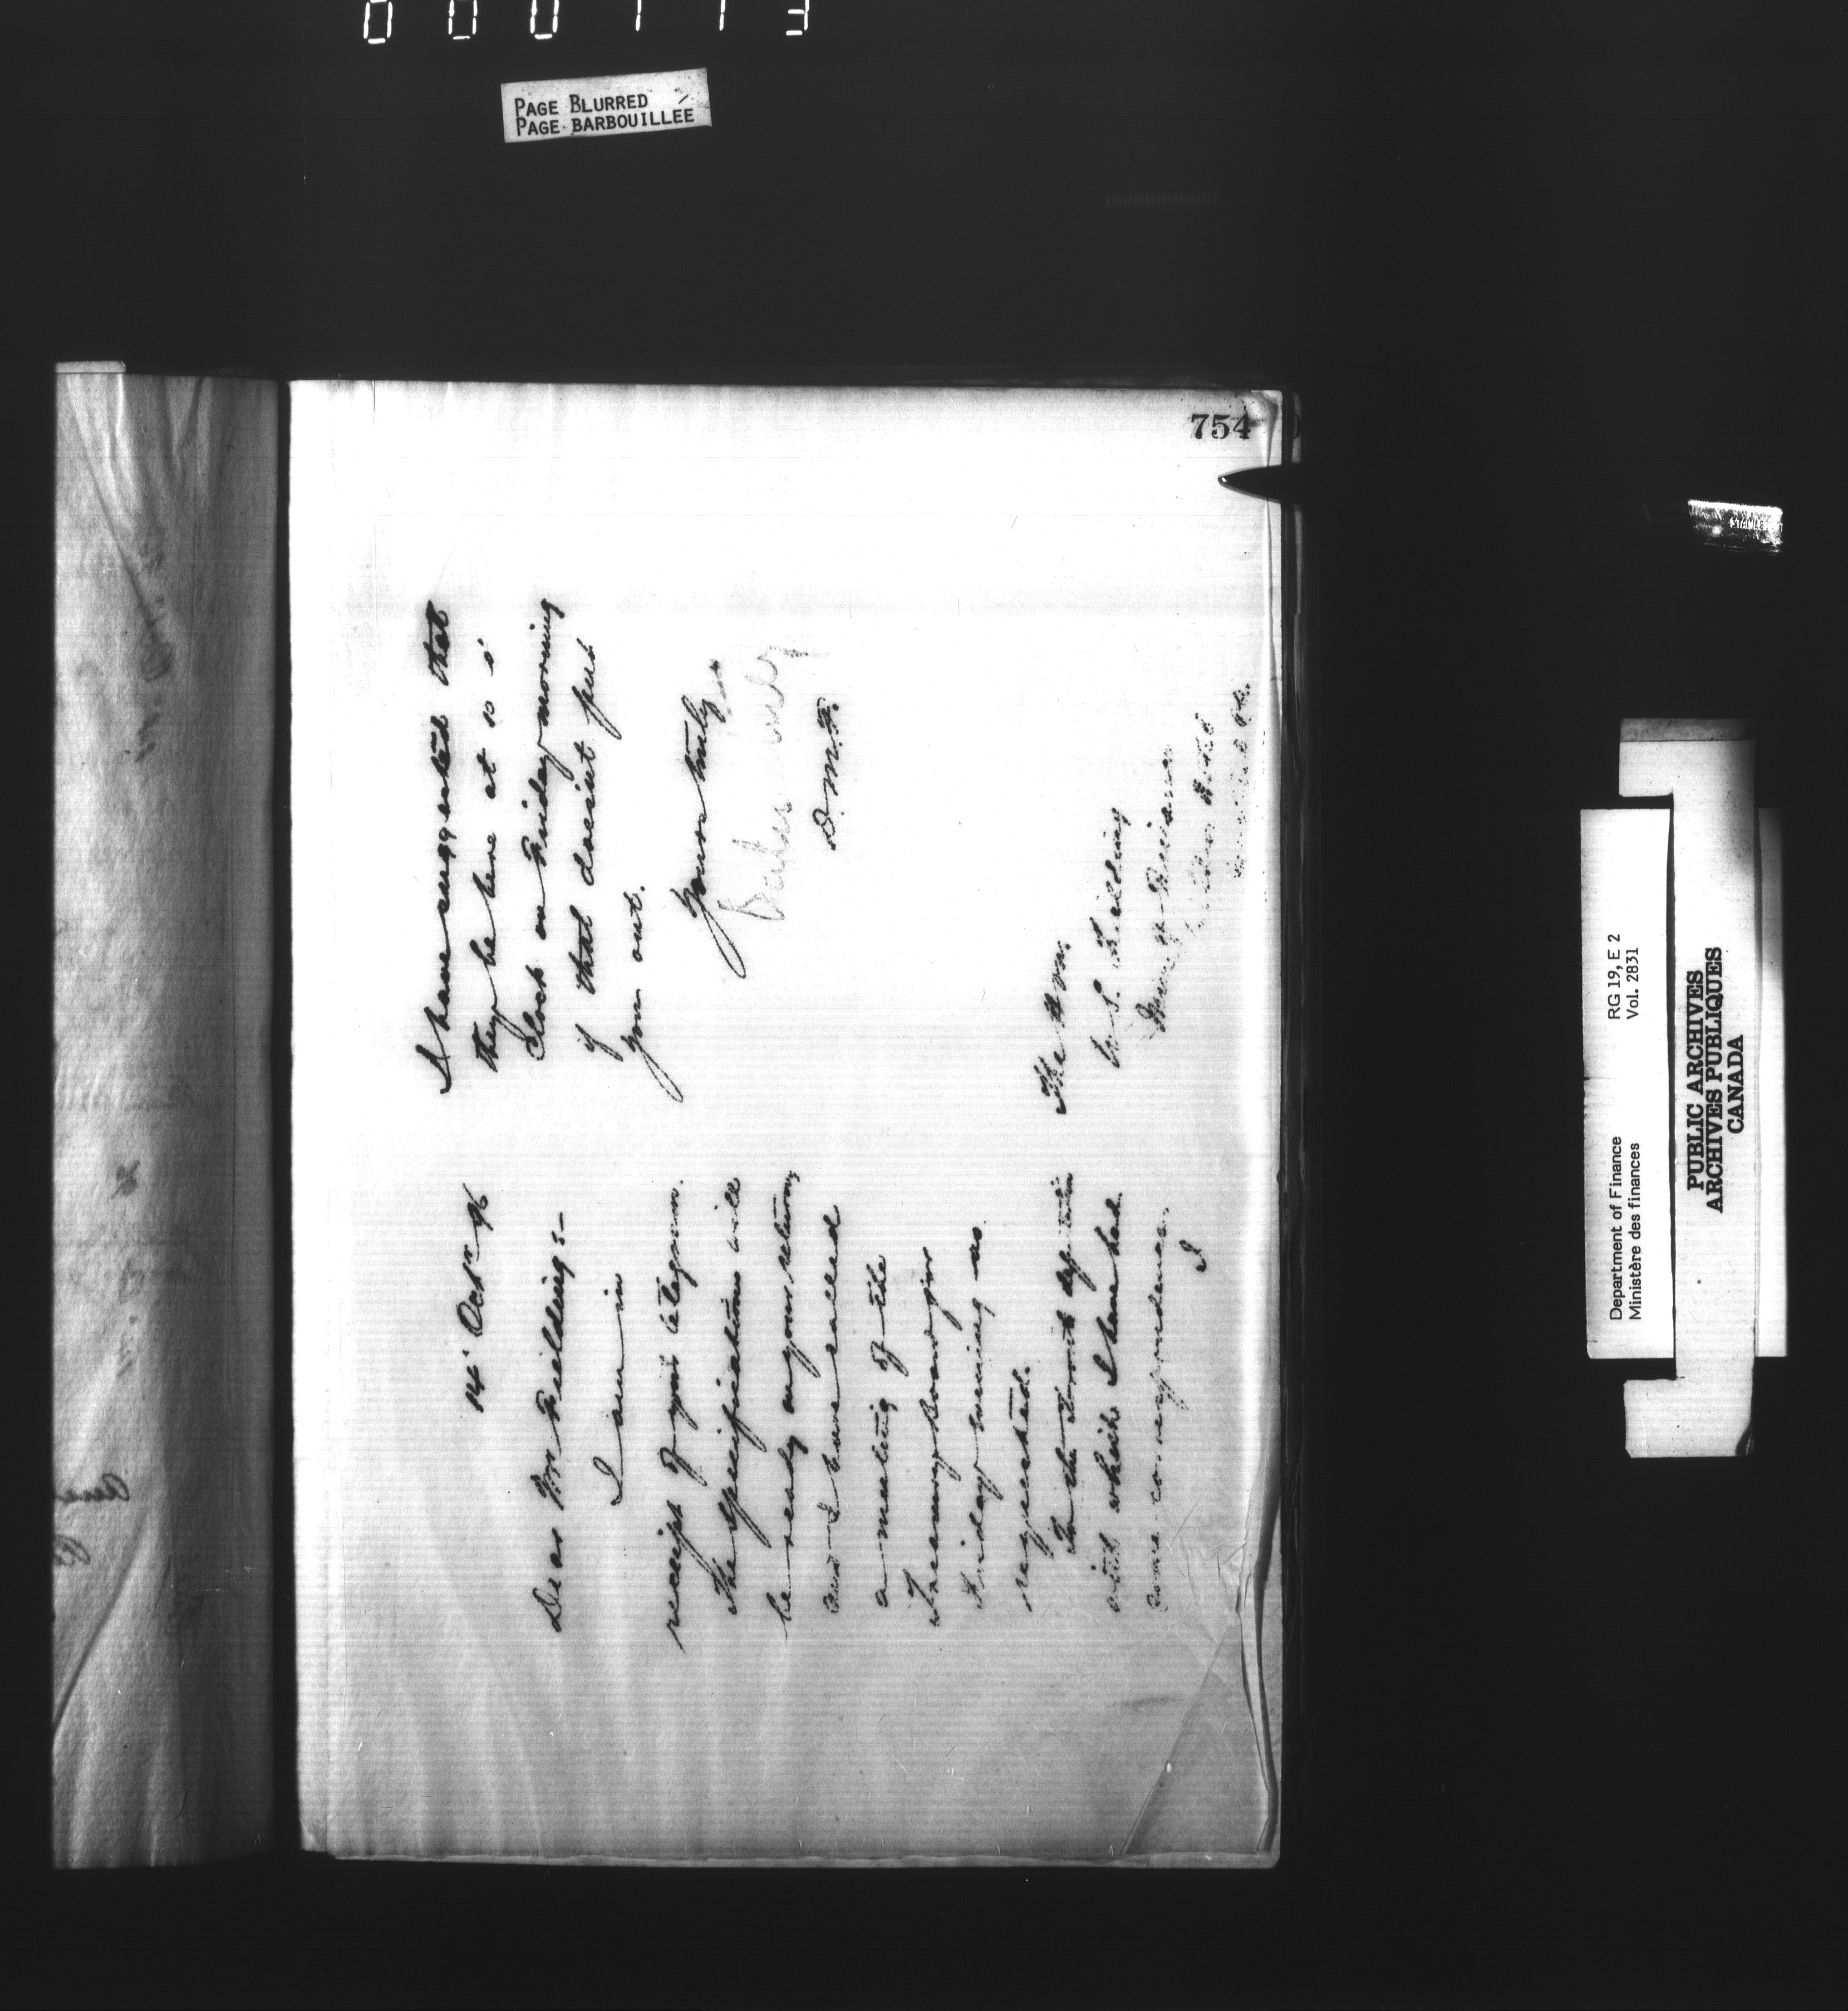 000113
PAGE BLURRED
PAGE BARBOUILLEE
754
14 Octr 96
Dear Mr Fielding:-
I am in
receipt of your telegram.
The specifications will
be ready on your return,
and I have called
a meeting of the
Treasury Board for
Friday evening as
requested.
To the
with which I have had
some correspondence.
I
I have suggested that
they be here at 10 o'
clock on Friday morning
if that doesn't put
you out.
Yours truly
D.M.F.
The Hon.
W. S. Fielding
Finance
Hotel
Department of Finance
Ministère des finances
RG 19, E 2
Vol. 2831
PUBLIC ARCHIVES
ARCHIVES PUBLIQUES
CANADA